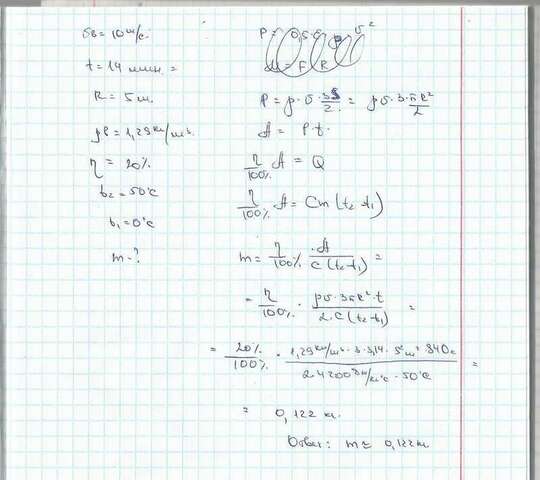 σв = 10 м/с.
t = 14 мин. =
R = 5 м.
ρв = 1,29 кг/м³.
η = 20%
t₂ = 50°C
t₁ = 0°C
m - ?
P = 0,5 σ²
= F R
P = ρ·σ·3S/2 = ρσ·3·πR²/2
A = P·t.
η/100% A = Q
η/100% ·A = Cm(t₂-t₁)
m = η/100% · A/C(t₂-t₁) =
= η/100% · ρσ·3πR²·t/2·C(t₂-t₁) =
= 20%/100% · 1,29 кг/м³·3·3,14·5²м²·840с/2·4200 Дж/кг°C·50°C =
= 0,122 кг.
Ответ: m ≈ 0,122 кг